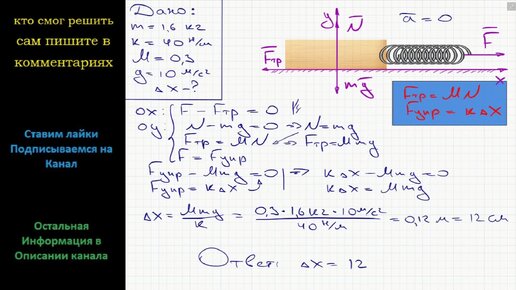 кто смог решить
сам пишите в
комментариях
Ставим лайки
Подписываемся на
Канал
Остальная
Информация в
Описании канала
Дано:
m = 1,6 кг
k = 40 Н/м
M = 0,3
g = 10 м/с²
Δx - ?
y N a = 0
Fтр F
x
mg
Fтр = MN
Fупр = kΔx
ox: F - Fтр = 0
oy: N - mg = 0 ⇒ N = mg
Fтр = MN ⇒ Fтр = Mmg
F = Fупр
Fупр - Mmg = 0 ⇒ kΔx - Mmg = 0
Fупр = kΔx kΔx = Mmg
Δx = Mmg/k = 0,3 · 1,6 кг · 10 м/с² / 40 Н/м = 0,12 м = 12 см
Ответ: Δx = 12